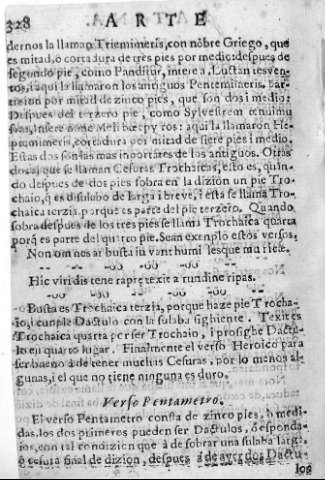 328 ARTE
dernos la llaman Triemimeris, con nõbre Griego, que
es mitad, o cortadura de tres pies por medio: despues de
segundo pie, como Panditur, interea, Luctan tes ven-
tos, i aqui la llamaron los antiguos Pentemimeris. par-
ticion por mitad de zinco pies, que son dos i medio:
Despues del terzero pie, como Sylvestrem tenui mu
sam, Insere nunc Melibœe pyros: aqui la llamaron He-
ptemimeris, cortadura por mitad de siere pies i medio.
Estas dos son las mas inportãtes de los antiguos. Otras
dos ai que se llaman Cesuras Trochaicas, i esto es, quãn-
do despues de dos pies sobra en la dizion un pie Tro-
chaio, q̃ es disulabo de larga i breve, i esta se llama Tro-
chaica terzia, porque es parte del pie terzero. Quando
sobra despues de los tres pies se llama Trochaica quarta
porq̃ es parte del quarto pie. Sean exenplo estos versos.
Non omnes ar busta iu vant humi lesque mi ricæ.
Hic viri dis tene ra præ texit a rundine ripas.
Busta es Trochaica terzia, porque haze pie Trocha-
io, i cunple Dactulo con la sulaba sighiente. Texit es
Trochaica quarta por ser Trochaio, i prosighe Dactu-
lo en quarto lugar. Finalmente el verso Heroico para
ser bueno à de tener muchas Cesuras, por lo menos al-
gunas, i el que no tiene ninguna es duro.
Verso Pentametro.
El verso Pentametro consta de zinco pies, o medi-
das, los dos primeros pueden ser Dactulos, o esponda-
ios, con tal condizion que à de sobrar una sulaba larga,
o cesura final de dizion, despues à de aver dos Dactu-
los